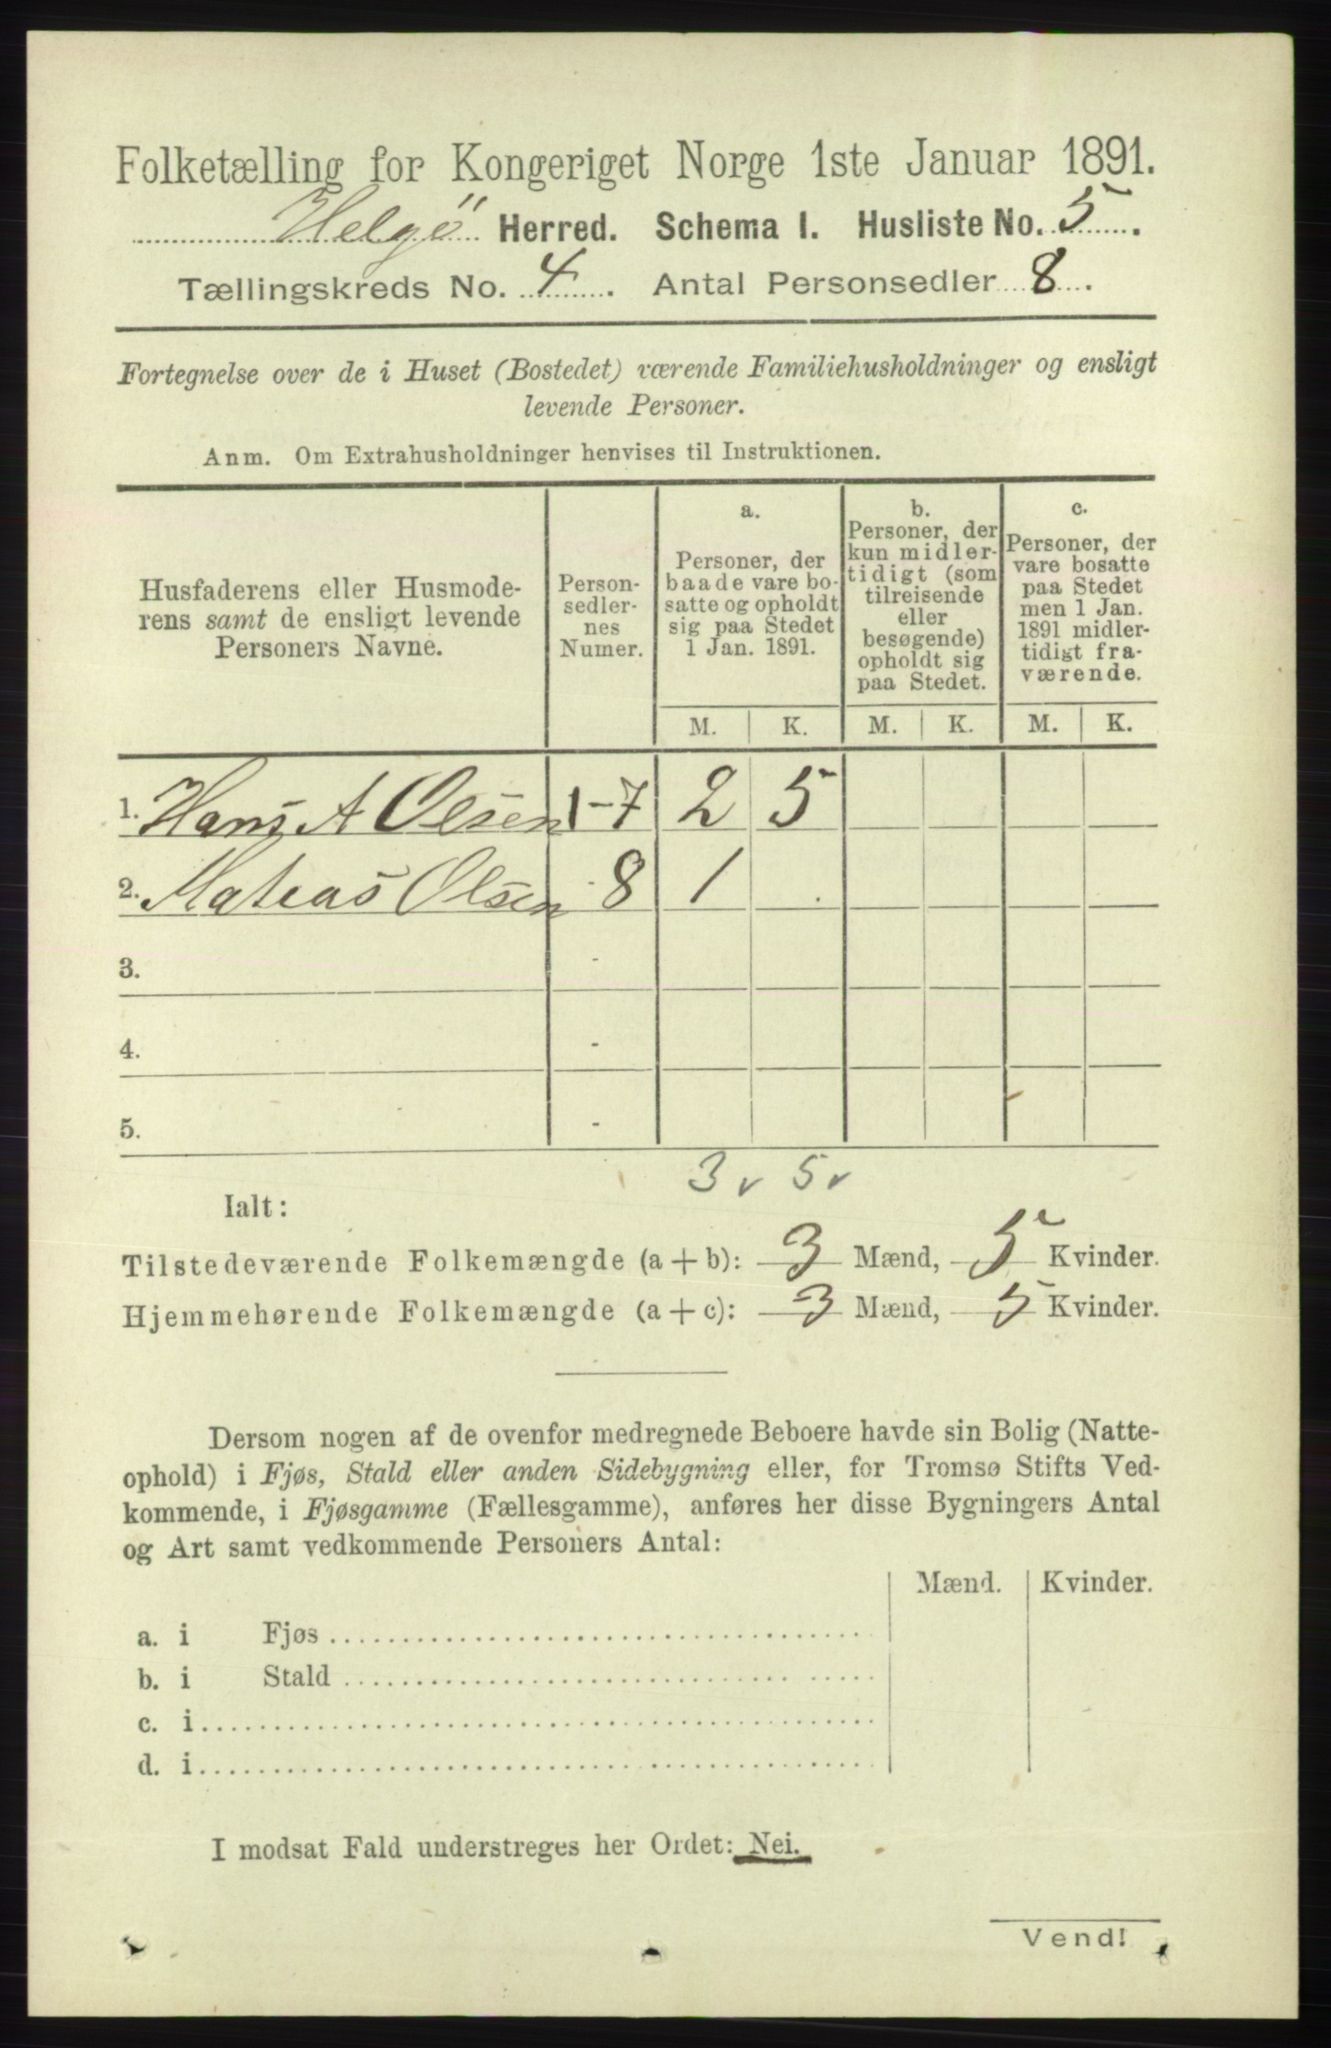 Folketælling for Kongeriget Norge 1ste Januar 1891.
Helgö Herred. Schema I. Husliste No. 5.
Tællingskreds No. 4. Antal Personsedler 8.
Fortegnelse over de i Huset (Bostedet) værende Familiehusholdninger og ensligt
levende Personer.
Anm. Om Extrahusholdninger henvises til Instruktionen.
Husfaderens eller Husmode-
rens samt de ensligt levende
Personers Navne.
Person-
sedler-
nes
Numer.
a.
Personer, der
baade vare bo-
satte og opholdt
sig paa Stedet
1 Jan. 1891.
b.
Personer, der
kun midler-
tidigt (som
tilreisende
eller
besøgende)
opholdt sig
paa Stedet.
c.
Personer, der
vare bosatte
paa Stedet
men 1 Jan.
1891 midler-
tidigt fra-
værende.
M. K. M. K. M. K.
1. Hans A Olsen 1-7 2 5
2. Mateas Olsen - 8 1 .
3. -
4. -
5. -
3 v 5 v
Ialt:
Tilstedeværende Folkemængde (a + b): 3 Mænd, 5 Kvinder.
Hjemmehørende Folkemængde (a + c): 3 Mænd, 5 Kvinder.
Dersom nogen af de ovenfor medregnede Beboere havde sin Bolig (Natte-
ophold) i Fjøs, Stald eller anden Sidebygning eller, for Tromsø Stifts Ved-
kommende, i Fjøsgamme (Fællesgamme), anføres her disse Bygningers Antal
og Art samt vedkommende Personers Antal:
Mænd. Kvinder.
a. i Fjøs
b. i Stald
c. i
d. i
I modsat Fald understreges her Ordet: Nei.
Vend!